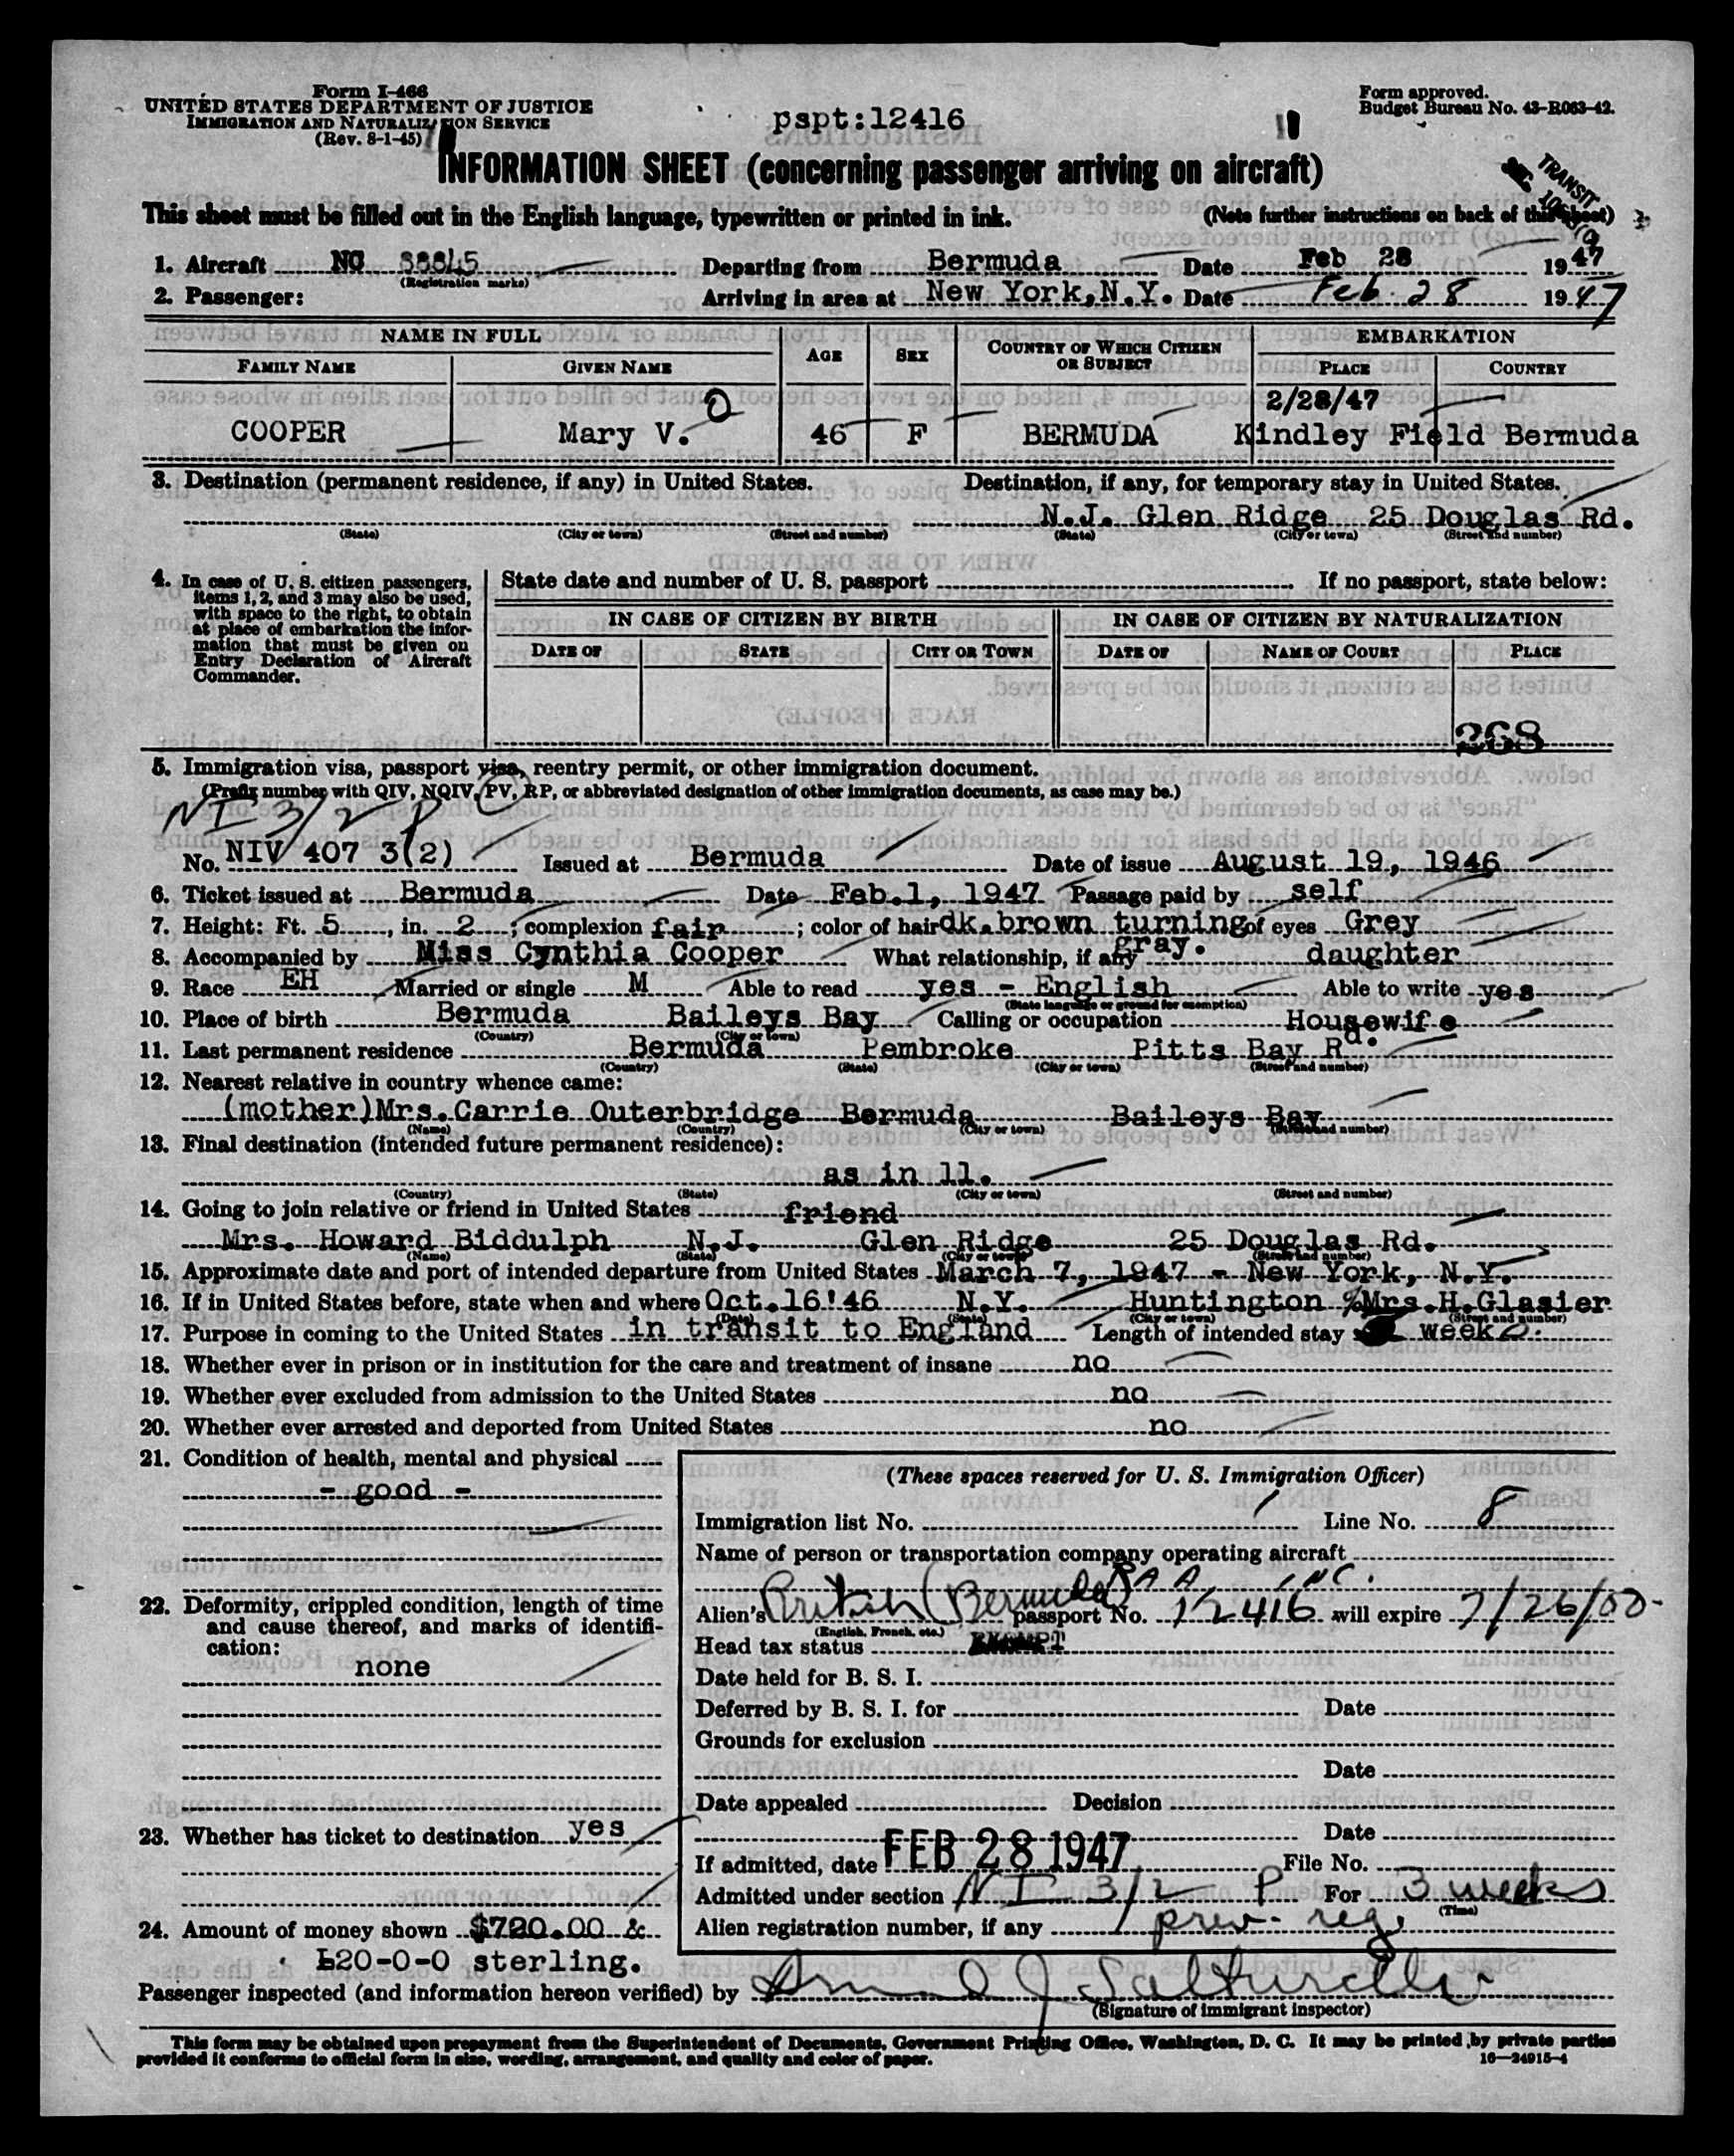 Form I-466
UNITED STATES DEPARTMENT OF JUSTICE
IMMIGRATION AND NATURALIZATION SERVICE
(Rev. 8-1-45)
pspt:12416
Form approved.
Budget Bureau No. 43-R063-42.
INFORMATION SHEET (concerning passenger arriving on aircraft)
TRANSIT
This sheet must be filled out in the English language, typewritten or printed in ink.
(Note further instructions on back of this sheet)
1. Aircraft NC 88845 Departing from Bermuda Date Feb 28 1947
(Registration marks)
2. Passenger: Arriving in area at New York,N.Y. Date Feb. 28 1947
NAME IN FULL AGE SEX COUNTRY OF WHICH CITIZEN OR SUBJECT EMBARKATION
FAMILY NAME GIVEN NAME PLACE COUNTRY
2/28/47
COOPER Mary V. O 46 F BERMUDA Kindley Field Bermuda
3. Destination (permanent residence, if any) in United States. Destination, if any, for temporary stay in United States.
N.J. Glen Ridge 25 Douglas Rd.
(State) (City or town) (Street and number) (State) (City or town) (Street and number)
4. In case of U. S. citizen passengers, items 1, 2, and 3 may also be used, with space to the right, to obtain at place of embarkation the information that must be given on Entry Declaration of Aircraft Commander.
State date and number of U. S. passport If no passport, state below:
IN CASE OF CITIZEN BY BIRTH IN CASE OF CITIZEN BY NATURALIZATION
DATE OF STATE CITY OR TOWN DATE OF NAME OF COURT PLACE
268
5. Immigration visa, passport visa, reentry permit, or other immigration document.
(Prefix number with QIV, NQIV, PV, RP, or abbreviated designation of other immigration documents, as case may be.)
NI 3/2 P
No. NIV 407 3(2) Issued at Bermuda Date of issue August 19, 1946
6. Ticket issued at Bermuda Date Feb.1, 1947 Passage paid by self
7. Height: Ft. 5, in. 2; complexion fair; color of hair dk.brown turning of eyes Grey
gray.
8. Accompanied by Miss Cynthia Cooper What relationship, if any daughter
9. Race EH Married or single M Able to read yes - English Able to write yes
(State language or ground for exemption)
10. Place of birth Bermuda Baileys Bay Calling or occupation Housewife
(Country) (City or town)
11. Last permanent residence Bermuda Pembroke Pitts Bay Rd.
(Country) (State) (City or town) (Street and number)
12. Nearest relative in country whence came:
(mother)Mrs.Carrie Outerbridge Bermuda Baileys Bay
(Name) (Country) (City or town) (Street and number)
13. Final destination (intended future permanent residence):
as in 11.
(Country) (State) (City or town) (Street and number)
14. Going to join relative or friend in United States friend
Mrs. Howard Biddulph N.J. Glen Ridge 25 Douglas Rd.
(Name) (State) (City or town) (Street and number)
15. Approximate date and port of intended departure from United States March 7, 1947 - New York, N.Y.
16. If in United States before, state when and where Oct.16'46 N.Y. Huntington %Mrs.H.Glasier
(Date) (State) (City or town) (Street and number)
17. Purpose in coming to the United States in transit to England Length of intended stay week
18. Whether ever in prison or in institution for the care and treatment of insane no
19. Whether ever excluded from admission to the United States no
20. Whether ever arrested and deported from United States no
21. Condition of health, mental and physical
- good -
22. Deformity, crippled condition, length of time and cause thereof, and marks of identification:
none
23. Whether has ticket to destination yes
24. Amount of money shown $720.00 &
£20-0-0 sterling.
(These spaces reserved for U. S. Immigration Officer)
Immigration list No. 1 Line No. 8
Name of person or transportation company operating aircraft
P A A INC.
Alien's British (Bermuda) passport No. 12416 will expire 7/26/50
(English, French, etc.)
Head tax status EXEMPT
Date held for B. S. I.
Deferred by B. S. I. for Date
Grounds for exclusion
Date
Date appealed Decision
Date
If admitted, date FEB 28 1947 File No.
Admitted under section NI 3/2 P For 3 weeks
(Time)
Alien registration number, if any prev. reg.
Passenger inspected (and information hereon verified) by
(Signature of immigrant inspector)
This form may be obtained upon prepayment from the Superintendent of Documents, Government Printing Office, Washington, D. C. It may be printed by private parties
provided it conforms to official form in size, wording, arrangement, and quality and color of paper.
16—24915-4